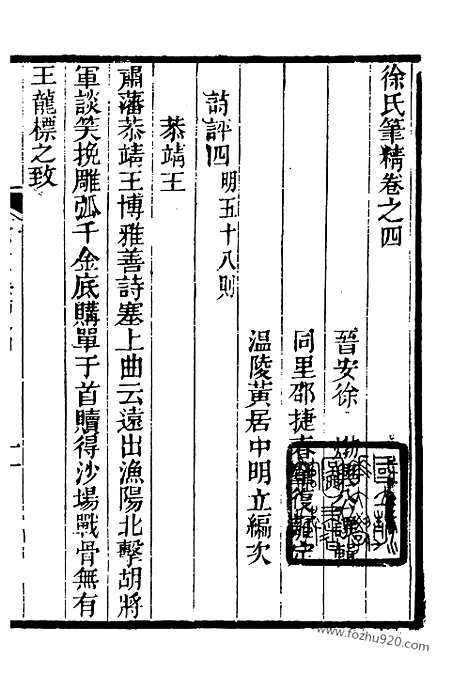 徐氏筆精卷之四
晉安徐
同里邵捷春
溫陵黃居中明立編次
詩評四明五十八則
恭靖王
肅藩恭靖王博雅善詩塞上曲云遠出漁陽北擊胡將
軍談笑挽雕弧千金底購單于首贖得沙場戰骨無有
王龍標之致
www.fozhu920.com